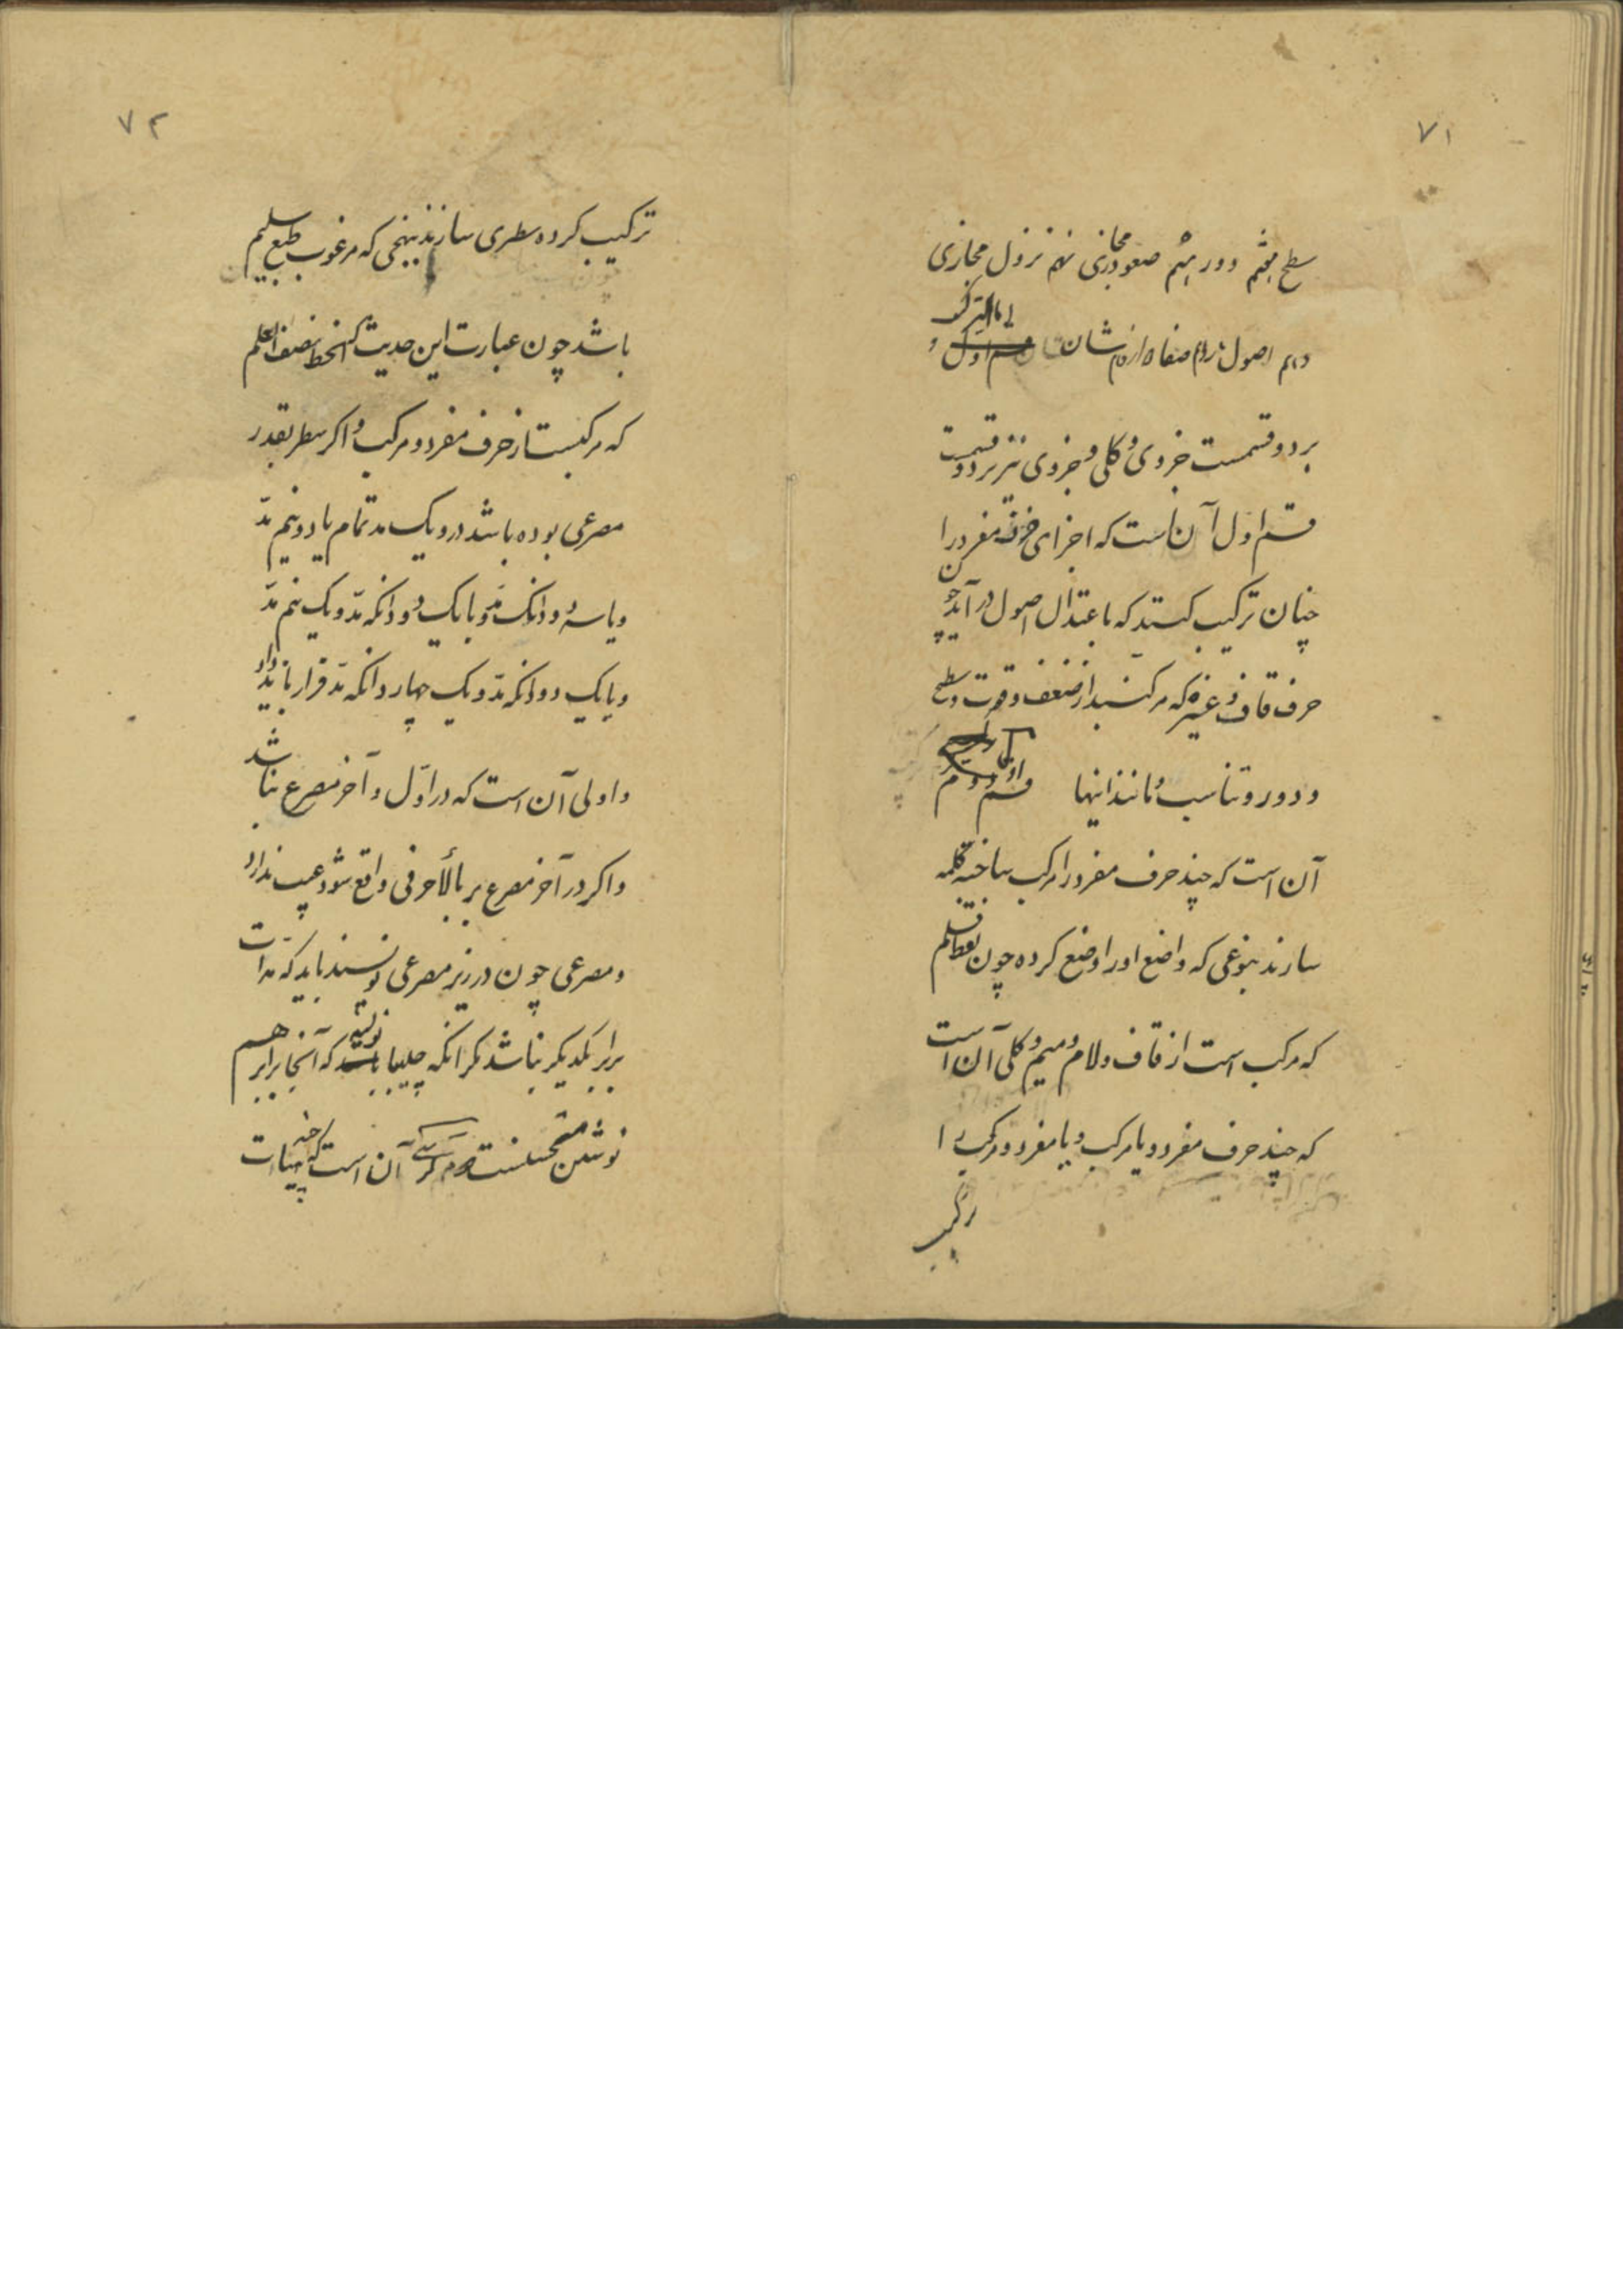 ۷۱
سطح هفتم دور هشتم صعود مجازی نهم نزول مجازی
دهم اصول یازدهم صفا دوازدهم شان اما ترکیب
بر دو قسمست جزوی و کلی و جزوی نیز بر دو قسمت
قسم اول آن است که اجزای حرف مفرد را
چنان ترکیب کنند که باعتدال اصول در آید چون
حرف قاف و غیره که مرکبند از ضعف و قوت و سطح
و دور و تناسب و مانند اینها قسم دوم
آن است که چند حرف مفرد را مرکب ساخته کلمه
سازند بنوعی که واضع او را وضع کرده چون لفظ قلم
که مرکب است از قاف و لام و میم و کلی آن است
که چند حرف مفرد و یا مرکب و یا مفرد و مرکب را
ترکیب
۷۲
ترکیب کرده سطری سازند بنهجی که مرغوب طبع سلیم
باشد چون عبارت این حدیث که الخط نصف العلم
که مرکبست از حرف مفرد و مرکب و اکر سطر بقدر
مصرعی بوده باشد درو یک مد تمام یا دو نیم مدّ
و یا سه دودانکه مدّ و یا یک دودانکه مدّ و یک نیم مدّ
و یا یک دودانکه مدّ و یک چهار دانکه مدّ قرار باید داد
و اولی آن است که در اوّل و آخر مصرع مد نباشد
و اکر در آخر مصرع بر بالاء حرفی واقع شود عیب ندارد
و مصرعی چون در زیر مصرعی نویسند باید که مدات
برابر یکدیکر نباشد مکر انکه چلیپا نویسند که آنجا برابر هم
نوشتن مستحسنست دوم کرسی آن است که چنانچه